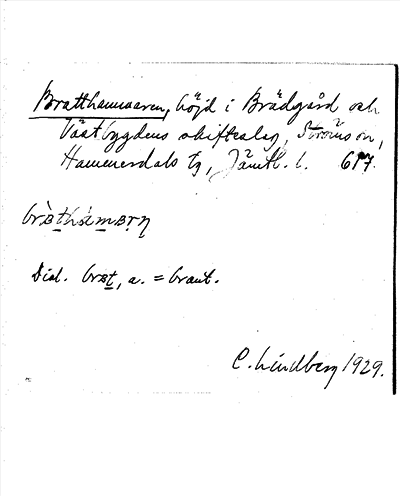 Bratthammaren, höjd i Brådgård och
Västbygdens skifteslag, Ströms sn,
Hammerdals tg, Jämtl. l. 617.
Dial. brat, a. = brant.
C. Lindberg 1929.